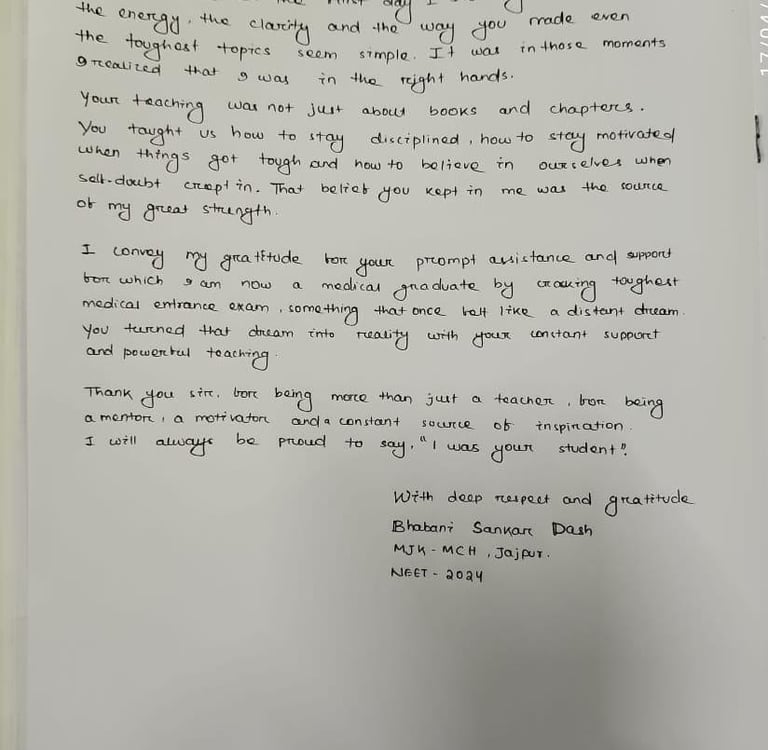 the first day I
the energy, the clarity and the way you made even
the toughest topics seem simple. It was in those moments
I realized that I was in the right hands.
Your teaching was not just about books and chapters.
You taught us how to stay disciplined, how to stay motivated
when things got tough and how to believe in ourselves when
self-doubt crept in. That belief you kept in me was the source
of my great strength.
I convey my gratitude for your prompt assistance and support
for which I am now a medical graduate by cracking toughest
medical entrance exam, something that once felt like a distant dream.
You turned that dream into reality with your constant support
and powerful teaching.
Thank you sir, for being more than just a teacher, for being
a mentor, a motivator and a constant source of inspiration.
I will always be proud to say, "I was your student".
With deep respect and gratitude
Bhabani Sankar Dash
MJK - MCH, Jajpur.
NEET - 2024
17/04/